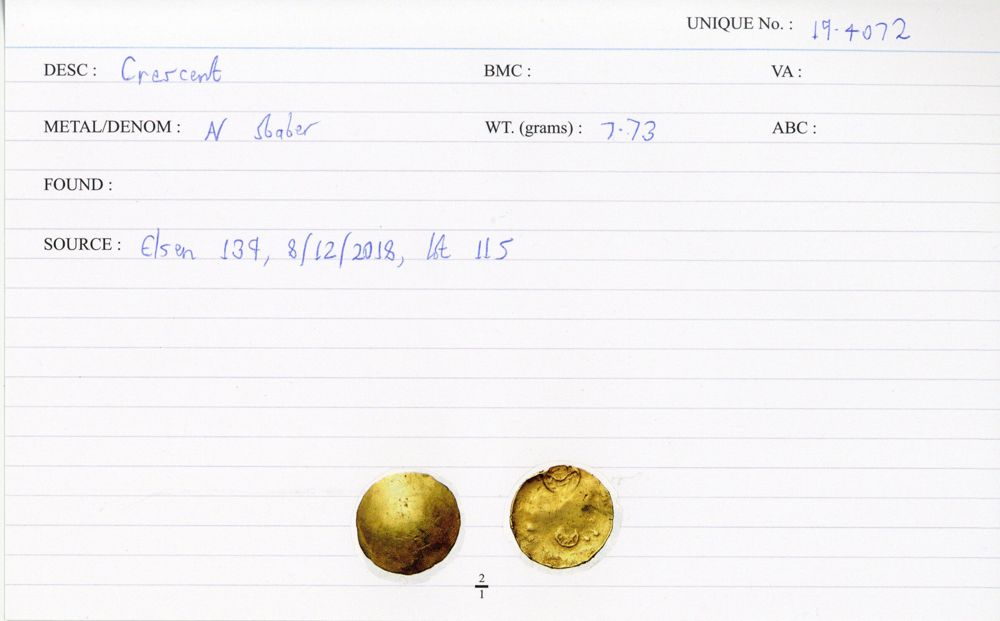 UNIQUE No. : 19.4072
DESC : Crescent BMC : VA :
METAL/DENOM : N stater WT. (grams) : 7.73 ABC :
FOUND :
SOURCE : Elsen 139, 8/12/2018, lot 115
2
1